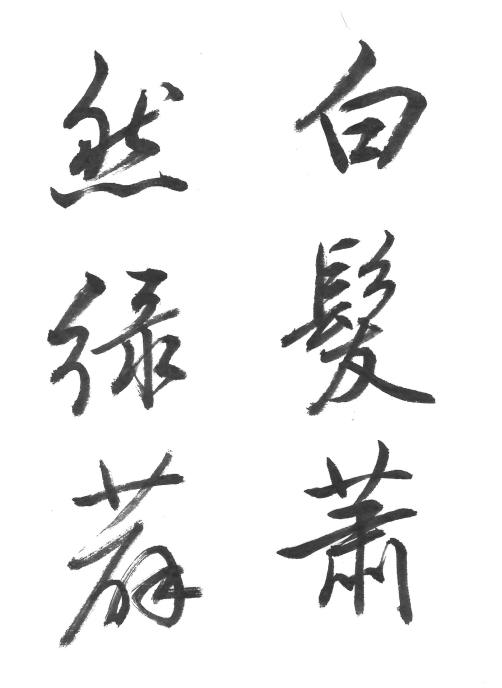 白髮蕭
然綠薜